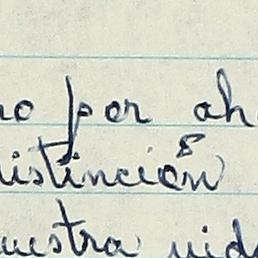 no por ah
istinción
uestra vid